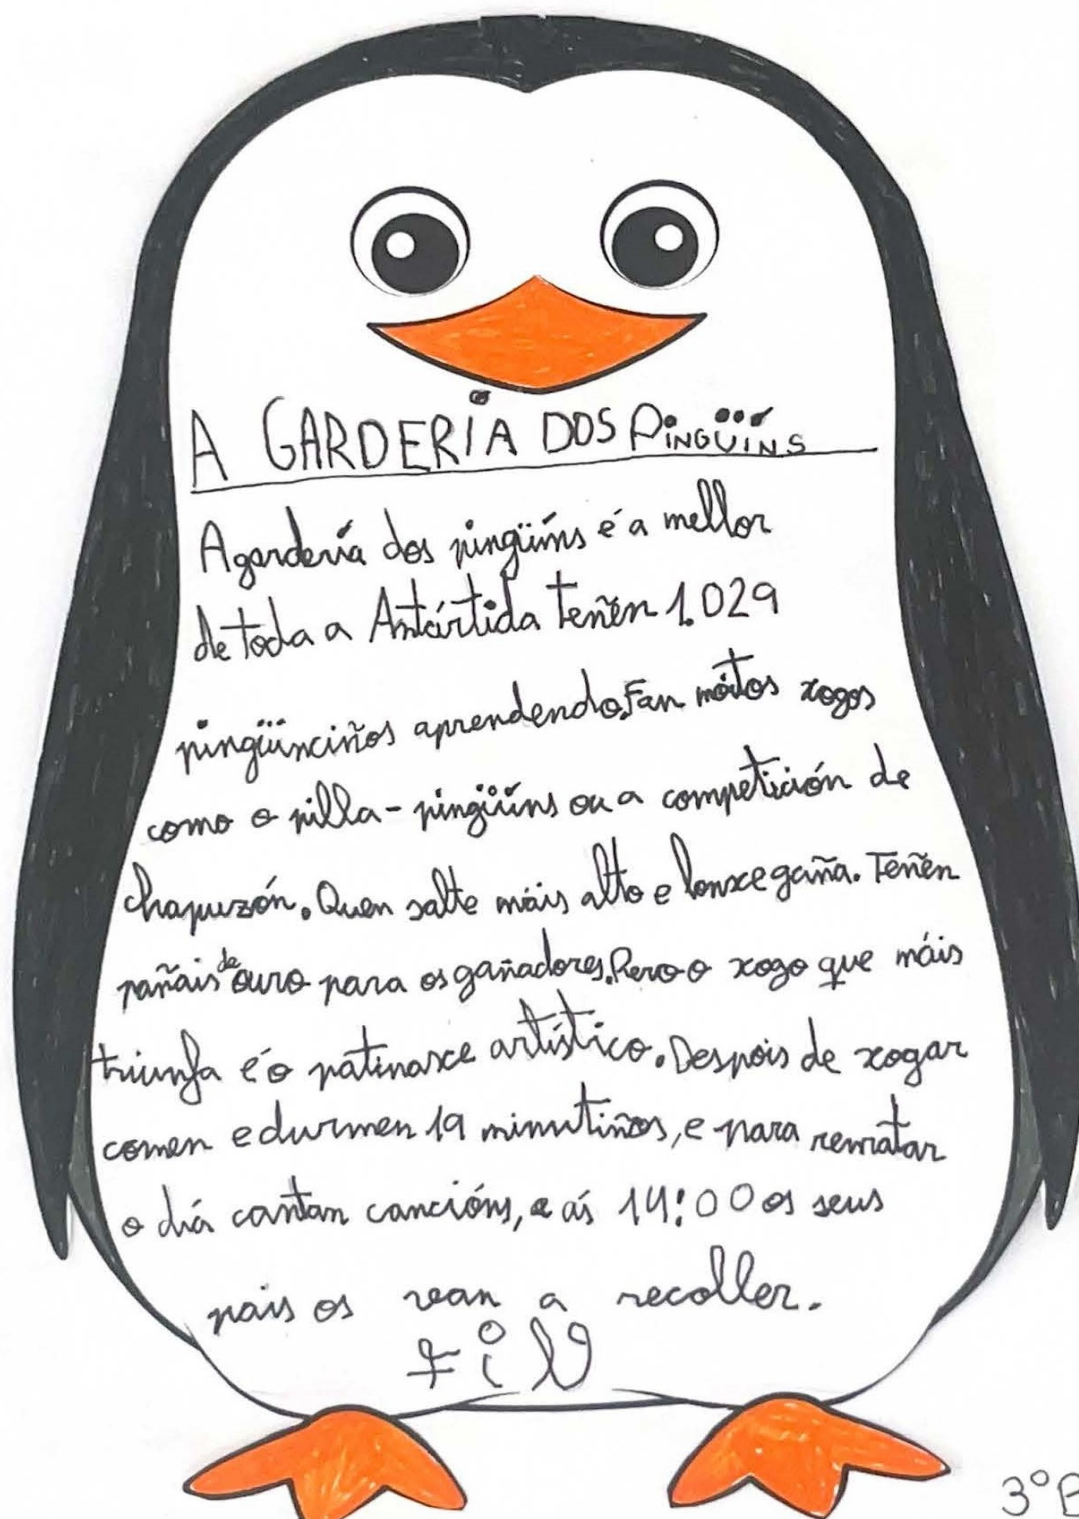 A GARDERÍA DOS PINGÜÍNS
A gardería dos pingüíns é a mellor
de toda a Antártida teñen 1.029
pingüinciños aprendendo. Fan moitos xogos
como o pilla-pingüíns ou a competición de
chapuzón. Quen salte máis alto e lonxe gaña. Teñen
pañais de ouro para os gañadores. Pero o xogo que máis
triunfa é o patinaxe artístico. Despois de xogar
comen e durmen 19 minutiños, e para rematar
o día cantan cancións, e ás 14:00 os seus
pais os vean a recoller.
FiN
3ºB